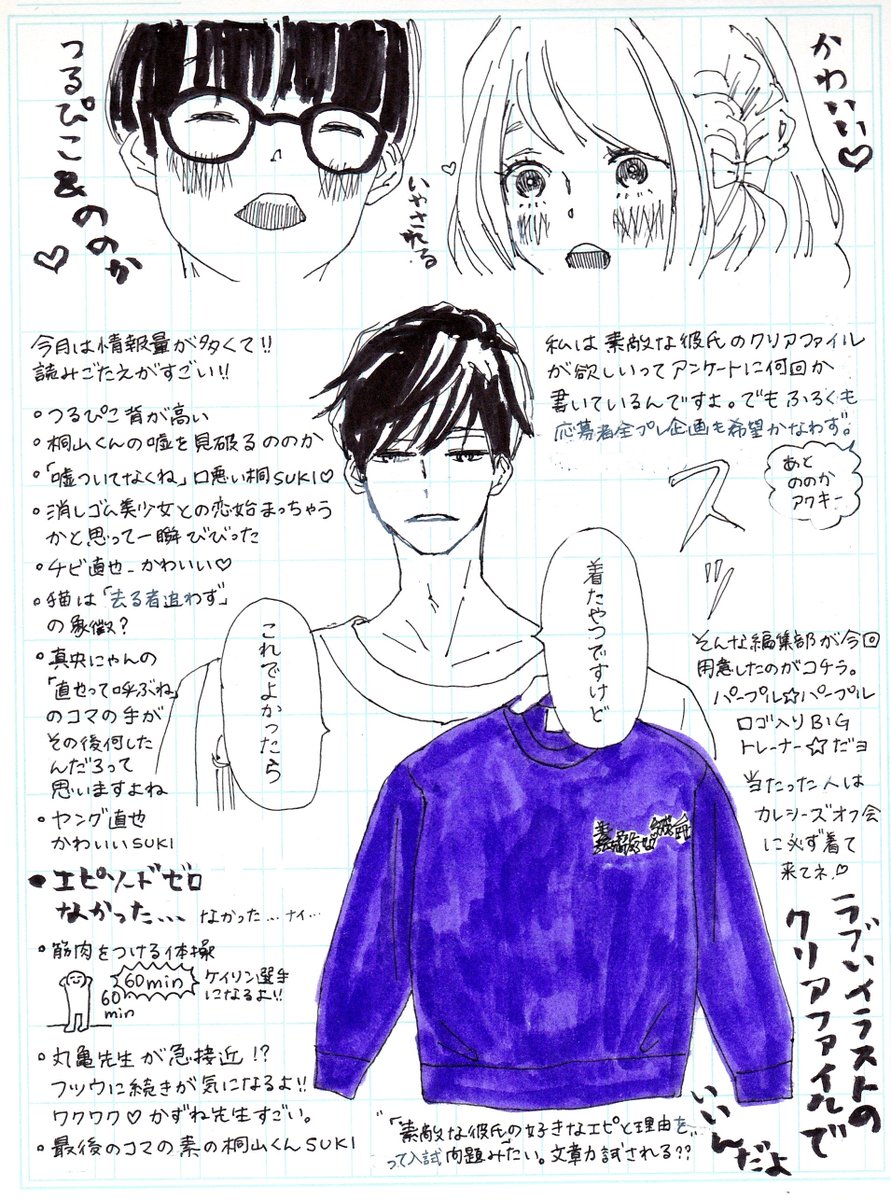 つるぴこ&ののか♡
いやされる
かわいい♡
今月は情報量が多くて!!
読みごたえがすごい!!
つるぴこ背が高い
桐山くんの嘘を見破るののか
「嘘ついてなくね」口悪い桐SUKI♡
消しゴム美少女との恋始まっちゃう
かと思って一瞬びびった
チビ直也_かわいい♡
猫は「去る者追わず」
の象徴?
真央にゃんの
「直也って呼ぶね」
のコマの手が
その後何した
んだろって
思いますよね
ヤング直也
かわいいSUKI
エピソードゼロ
なかった... なかった...ナイ...
筋肉をつける体操
60min
60
min
ケイリン選手
になるよ!!
丸亀先生が急接近!?
フツウに続きが気になるよ!!
ワクワク♡かずね先生すごい。
最後のコマの素の桐山くんSUKI
私は素敵な彼氏のクリアファイル
が欲しいってアンケートに何回か
書いているんですよ。でもふろくも
応募者全プレ企画も希望かなわず。
あと
ののか
アクキー
スッ
着たやつですけど
これでよかったら
そんな編集部が今回
用意したのがコチラ。
パープル☆パープル
ロゴ入りBIG
トレーナー☆だヨ
当たった人は
カレシーズオフ会
に必ず着て
来てネ♡
ラブいイラストの
クリアファイルで
いいんだよ
「素敵な彼氏の好きなエピと理由を...
って入試問題みたい。文章力試される??